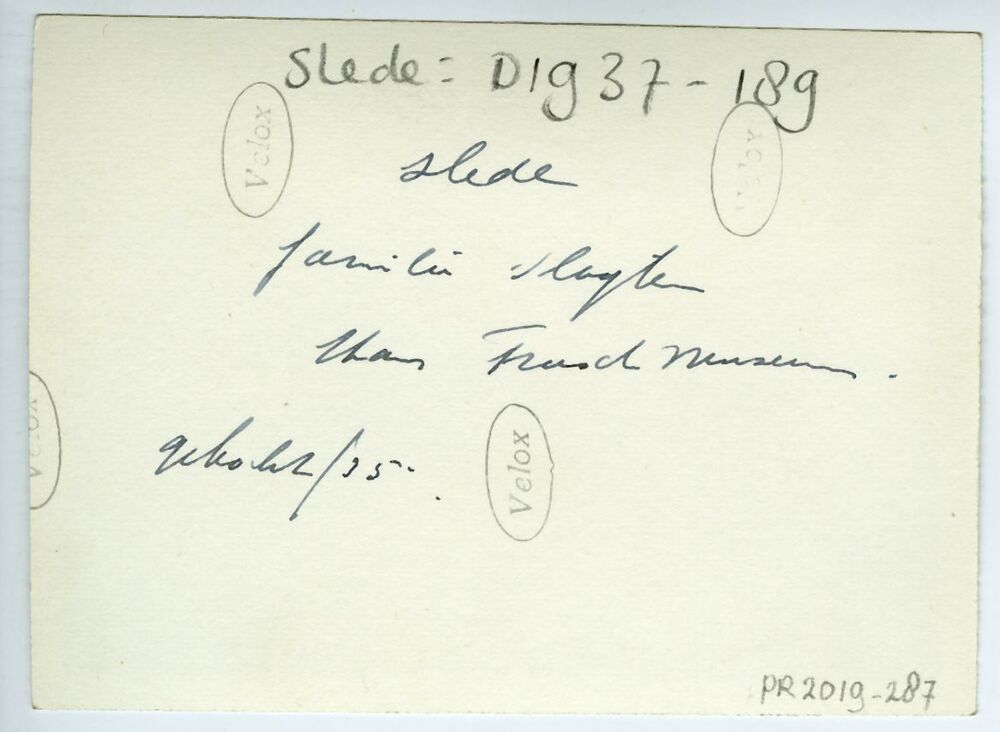 Slede = D1937-189
Velox
Velox
slede
familie Slagter
thans Friesch Museum.
Velox
gekocht/35.
Velox
PR2019-287